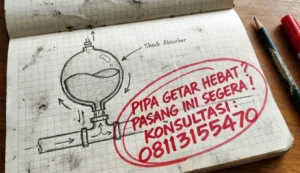 Shock Absorber
PIPA GETAR HEBAT?
PASANG INI SEGERA!
KONSULTASI:
08113155470